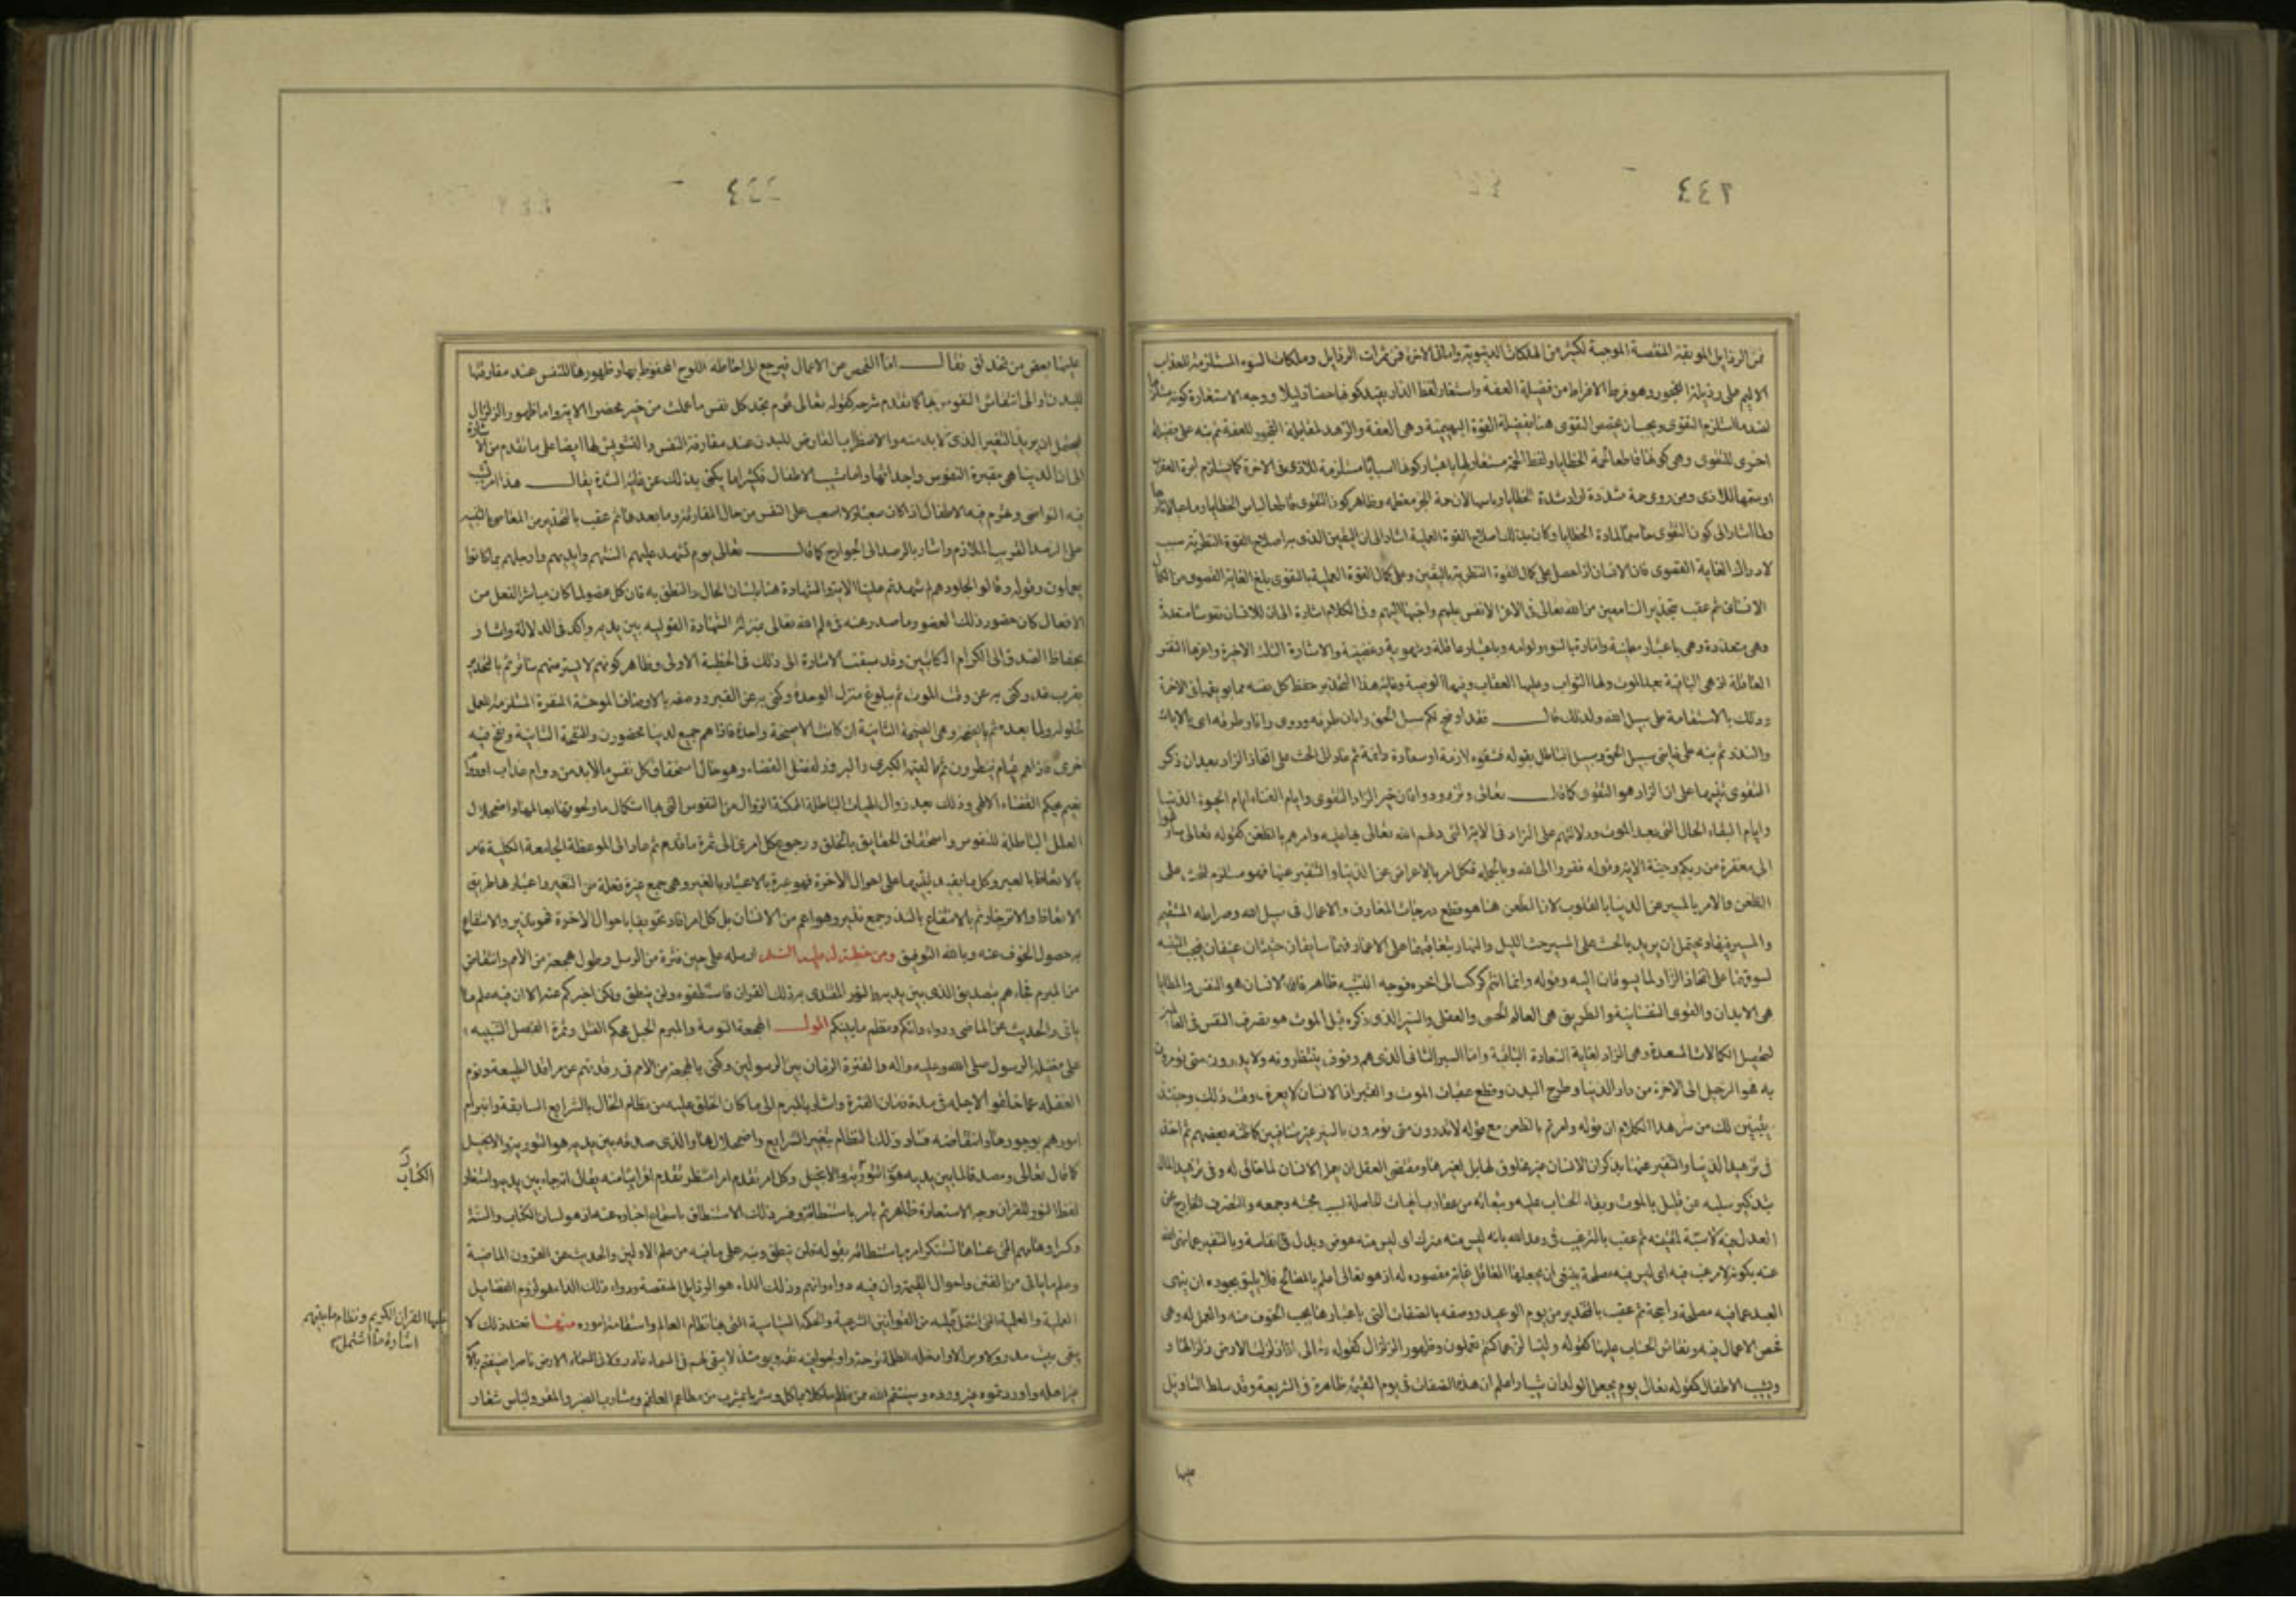 ٢٤٤
من الرذايل الموبقة المنقصة الموجبة لكثير من الهلكات الدنيوية واما في الاخرة فمن ثمرات الرذايل وملكات السوء المستلزمة للعذاب
الاليم على رذيلة الفجور وهو طرف الافراط من فضيلة العفة واستعار لفظ الدار بقيد كونها حصنا ذليلا ووجه الاستعارة كونه مستلزما
لضد ما استلزم التقوى ويجب ان يخص التقوى هنا بفضيلة القوة البهيمية وهى العفة والزهد لمقابلة الفجور للعفة ثم نبه على فضيلة
اخرى للتقوى وهى كونها قاطعة لحمة الخطايا ولفظ الحمة مستعار لها باعتبار كونها اسبابا مستلزمة للاذى فى الاخرة كما يستلزم ابرة العقرب
او سمها للاذى ومن روى حمة مشددة اراد شدة الخطايا وباسها لان حمة الحر معظمه وظاهر كون التقوى قاطعا لباس الخطايا وماحيا لاثارها
ولما اشار الى كون التقوى حاسما لمادة الخطايا وكان بذلك اصلاح القوة العملية اشار الى ان اليقين الذى به اصلاح القوة النظرية سبب
لادراك الغاية القصوى فان الانسان اذا حصل على كمال القوة النظرية باليقين وعلى كمال القوة العملية بالتقوى بلغ الغاية القصوى من الكمال
الانسانى ثم عقب بتحذير السامعين من الله تعالى فى الاعز الانفس عليهم واحبها اليهم وفى الكلام اشارة الى ان للانسان نفوسا متعددة
وهى متعددة وهى باعتبار مطمئنة وامارة بالسوء ولوامة وباعتبار عاقلة وشهوية وغضبية والاشارة الى الثلث الاخيرة واعزها النفس
العاقلة اذ هى الباقية بعد الموت ولها الثواب وعليها العقاب وفيها الوصية وغاية هذا التحذير حفظ كل نفسه مما يوبقها فى الاخرة
وذلك بالاستقامة على سبيل الله ولذلك قال فقد اوضح لكم سبيل الحق وابان طرقه وروى وانار طرقه اى بالايات
والنذر ثم نبه على غايتى سبيل الحق وسبيل الباطل بقوله فشقوة لازمة او سعادة دائمة ثم عاد الى الحث على اتخاذ الزاد بعد ان ذكر
التقوى تنبيها على ان الزاد هو التقوى كما قال تعالى وتزودوا فان خير الزاد التقوى وايام الفناء ايام الحيوة الدنيا
وايام البقاء الحال التى بعد الموت ودلالتهم على الزاد فى الاية التى دلهم الله تعالى عليه وامرهم بالظعن كقوله تعالى سارعوا
الى مغفرة من ربكم وجنة الاية وقوله ففروا الى الله وبالجملة فكل امر بالاعراض عن الدنيا والتنفير عنها فهو مستلزم للحث على
الظعن والامر بالمسير عن الدنيا بالقلوب لان الظعن هنا هو قطع درجات المعارف والاعمال فى سبيل الله وصراطه المستقيم
والمسير فيها ويحتمل ان يريد بالحث على المسير حث الليل والنهار بتعاقبهما على الاعمار فهما سايقان حثيثان عنيفان فيجب التنبه
لسوقهما على اتخاذ الزاد لما يسوقان اليه وقوله وانما انتم كركب الى اخره فوجه التشبيه ظاهر فالانسان هو النفس والمطايا
هى الابدان والقوى النفسانية والطريق هى العالم الحسى والعقلى والسير الذى ذكره قبل الموت هو تصرف النفس فى العالمين
لتحصيل الكمالات المسعدة وهى الزاد لغاية السعادة الباقية واما السير الثانى الذى هم وقوف ينتظرونه ولا يدرون متى يؤمرون
به فهو الرحيل الى الاخرة من دار الدنيا وطرح البدن وقطع عقبات الموت والقبر اذ الانسان لا يعرف وقت ذلك وحينئذ
يتبين لك من سر هذا الكلام ان قوله وامرتم بالظعن مع قوله لا تدرون متى تؤمرون بالسير غير متنافيين كما ظنه بعضهم ثم اخذ
فى تزهيد الدنيا والتنفير عنها بذكر ان الانسان غير مخلوق لها بل لغيرها ومقتضى العقل ان يعمل الانسان لما خلق له وفى تزهيد المال
بتذكير سلبه عن قليل بالموت وبقاء الحساب عليه وتبعاته من عقارب الهيات الحاصلة بسبب محبته وجمعه والتصرف الخارج عن
العدل فيه لاسية لمقتنيه ثم عقب بالترغيب فى وعد الله بانه ليس منه مترك اى ليس منه عوض وبدل فى النفاسة وبالتنفير عما نهى الله
عنه بكونه لا مرغب فيه اى ليس فيه مصلحة ينبغى ان يجعلها العاقل غاية مقصودة له اذ هو تعالى اعلم بالمصالح فلا يليق بجوده ان ينهى
العبد عما فيه مصلحة راجحة ثم عقب بالتحذير من يوم الوعيد ووصفه بالصفات التى باعتبارها يجب الخوف منه والعمل له وهى
فحص الاعمال فيه ونقاش الحساب عليها كقوله ولتسألن عما كنتم تعملون وظهور الزلزال كقوله تعالى اذا زلزلت الارض زلزالها و
وشيب الاطفال كقوله تعالى يوم يجعل الولدان شيبا واعلم ان هذه الصفات فى يوم القيمة ظاهرة فى الشريعة وقد سلط التاويل
عليها
عليها بعض من تحذلق فقال اما الفحص عن الاعمال فيرجع الى احاطة اللوح المحفوظ بها وظهورها للنفس عند مفارقتها
للبدن او الى انتقاش النفوس بها كما تقدم شرحه كقوله تعالى يوم تجد كل نفس ما عملت من خير محضرا الاية واما ظهور الزلزال
فيحتمل ان يريد التغير الذى لا بد منه والاضطراب العارض للبدن عند مفارقة النفس والتشويش لها ايضا على ما تقدم من الاشارة
الى ان الدنيا هى مقبرة النفوس واجداثها واما شيب الاطفال فكثيرا ما يكنى بذلك عن غاية الشدة يقال هذا امر تشيب
فيه النواصى وتهرم فيه الاطفال اذا كان صعبا ولا اصعب على النفس من حال المفارقة وما بعدها ثم عقب بالتحذير من المعاصى بالتنبيه
على الرصد القريب الملازم واشار بالرصد الى الجوارح كما قال تعالى يوم تشهد عليهم السنتهم وايديهم وارجلهم بما كانوا
يعملون وقوله وقالوا لجلودهم لم شهدتم علينا الاية والشهادة هنا بلسان الحال والنطق به فان كل عضو لما كان مباشرا لفعل من
الافعال كان حضور ذلك العضو وما صدر عنه فى علم الله تعالى بمنزلة الشهادة القولية بين يديه واكد فى الدلالة واشار
بحفاظ الصدق الى الكرام الكاتبين وقد سبقت الاشارة الى ذلك فى الخطبة الاولى وظاهر كونهم لا يستر منهم ساتر ثم بالتحذير
بقرب غد وكنى به عن وقت الموت ثم ببلوغ منزل الوحدة وكنى به عن القبر ووصفه بالاوصاف الموحشة المنفرة المستلزمة للعمل
لحلوله ولما بعده ثم بالصيحة وهى الصيحة الثانية ان كانت الا صيحة واحدة فاذا هم جميع لدينا محضرون والنفخة الثانية ونفخ فيه
اخرى فاذا هم قيام ينظرون ثم القيمة الكبرى والبروز لفصل القضاء وهو حال استحقاق كل نفس ما لا بد من دوام عذاب او دوام
نعيم بحكم القضاء الالهى وذلك بعد زوال الهيات الباطلة الممكنة الزوال من النفوس التى لها استكمال ما ولحوقها بعالمها واضمحلال
العلل الباطلة للنفوس واستحقاق الحقايق بالخلق ورجوع كل امرئ الى ثمرة ما قدم ثم عاد الى الموعظة الجامعة الكلية فامر
بالاتعاظ بالعبر وكل ما يفيد تنبيها على احوال الاخرة فهو عبرة بالاعتبار بالغير وهى جمع غيرة فعلة من التغير واعتبارها طريق
الاتعاظ والانزجار ثم بالانتفاع بالنذر جمع نذير وهو اعم من الانسان بل كل امر افاد تخويفا باحوال الاخرة فهو نذير والانتفاع
به حصول الخوف عنه وبالله التوفيق ومن خطبة له عليه السلم ارسله على حين فترة من الرسل وطول هجعة من الامم وانتقاض
من المبرم فجاءهم بتصديق الذى بين يديه والنور المقتدى به ذلك القران فاستنطقوه ولن ينطق ولكن اخبركم عنه الا ان فيه علم ما
ياتى والحديث عن الماضى ودواء دائكم ونظم ما بينكم اقول الهجعة النومة والمبرم الحبل المحكم الفتل وثمرة الفصل التنبيه
على فضيلة الرسول صلى الله عليه واله والفترة الزمان بين الرسولين وكنى بالهجعة من الامم فى رقدتهم عن مراقد الطبيعة ونوم
الغفلة عما خلقوا لاجله فى مدة زمان الفترة واشار بالمبرم الى ما كان الخلق عليه من نظام الحال بالشرايع السابقة وانبرام
امورهم بوجودها وانتقاضه فساد ذلك النظام بتغير الشرايع واضمحلالها والذى صدقه بين يديه هو التورية والانجيل
كما قال تعالى ومصدقا لما بين يديه هو التورية والانجيل وكل امر تقدم امرا منتظرا تقدم اقرابا منه يقال انه جاء بين يديه واستعار
لفظ النور للقران وجه الاستعارة ظاهر ثم امر باستنطاقه وفسر ذلك الاستنطاق باستماع اخباره عنه اذ هو لسان الكتاب والسنة
وكسر اوهامهم التى عساها تستنكر امره باستنطاقه بقوله فلن ينطق ونبه على ما فيه من علم الاولين والحديث عن القرون الماضية
وعلم ما ياتى من الفتن واحوال القيمة وان فيه دواء دائهم وذلك الداء هو الرذايل المنقصة ودواء ذلك الداء هو لزوم الفضايل
العلمية والعملية التى اشتمل عليها من القوانين الشرعية والحكمة السياسية التى بها نظام العالم واستقامة اموره منها فعند ذلك لا
يبقى بيت مدر ولا وبر الا وادخله الظلمة ترحة واولجوا فيه نقمة فيومئذ لا يبقى لهم فى السماء عاذر ولا فى الارض ناصر اصفيتم بالامر
غير اهله واوردتموه غير ورده وسينتقم الله ممن ظلم ماكلا بماكل ومشربا بمشرب من مطاعم العلقم ومشارب الصبر والمقر ولباس شعار
الكتاب
عليها القران الكريم ونظام ما بينهم
اشارة الى ما اشتمل